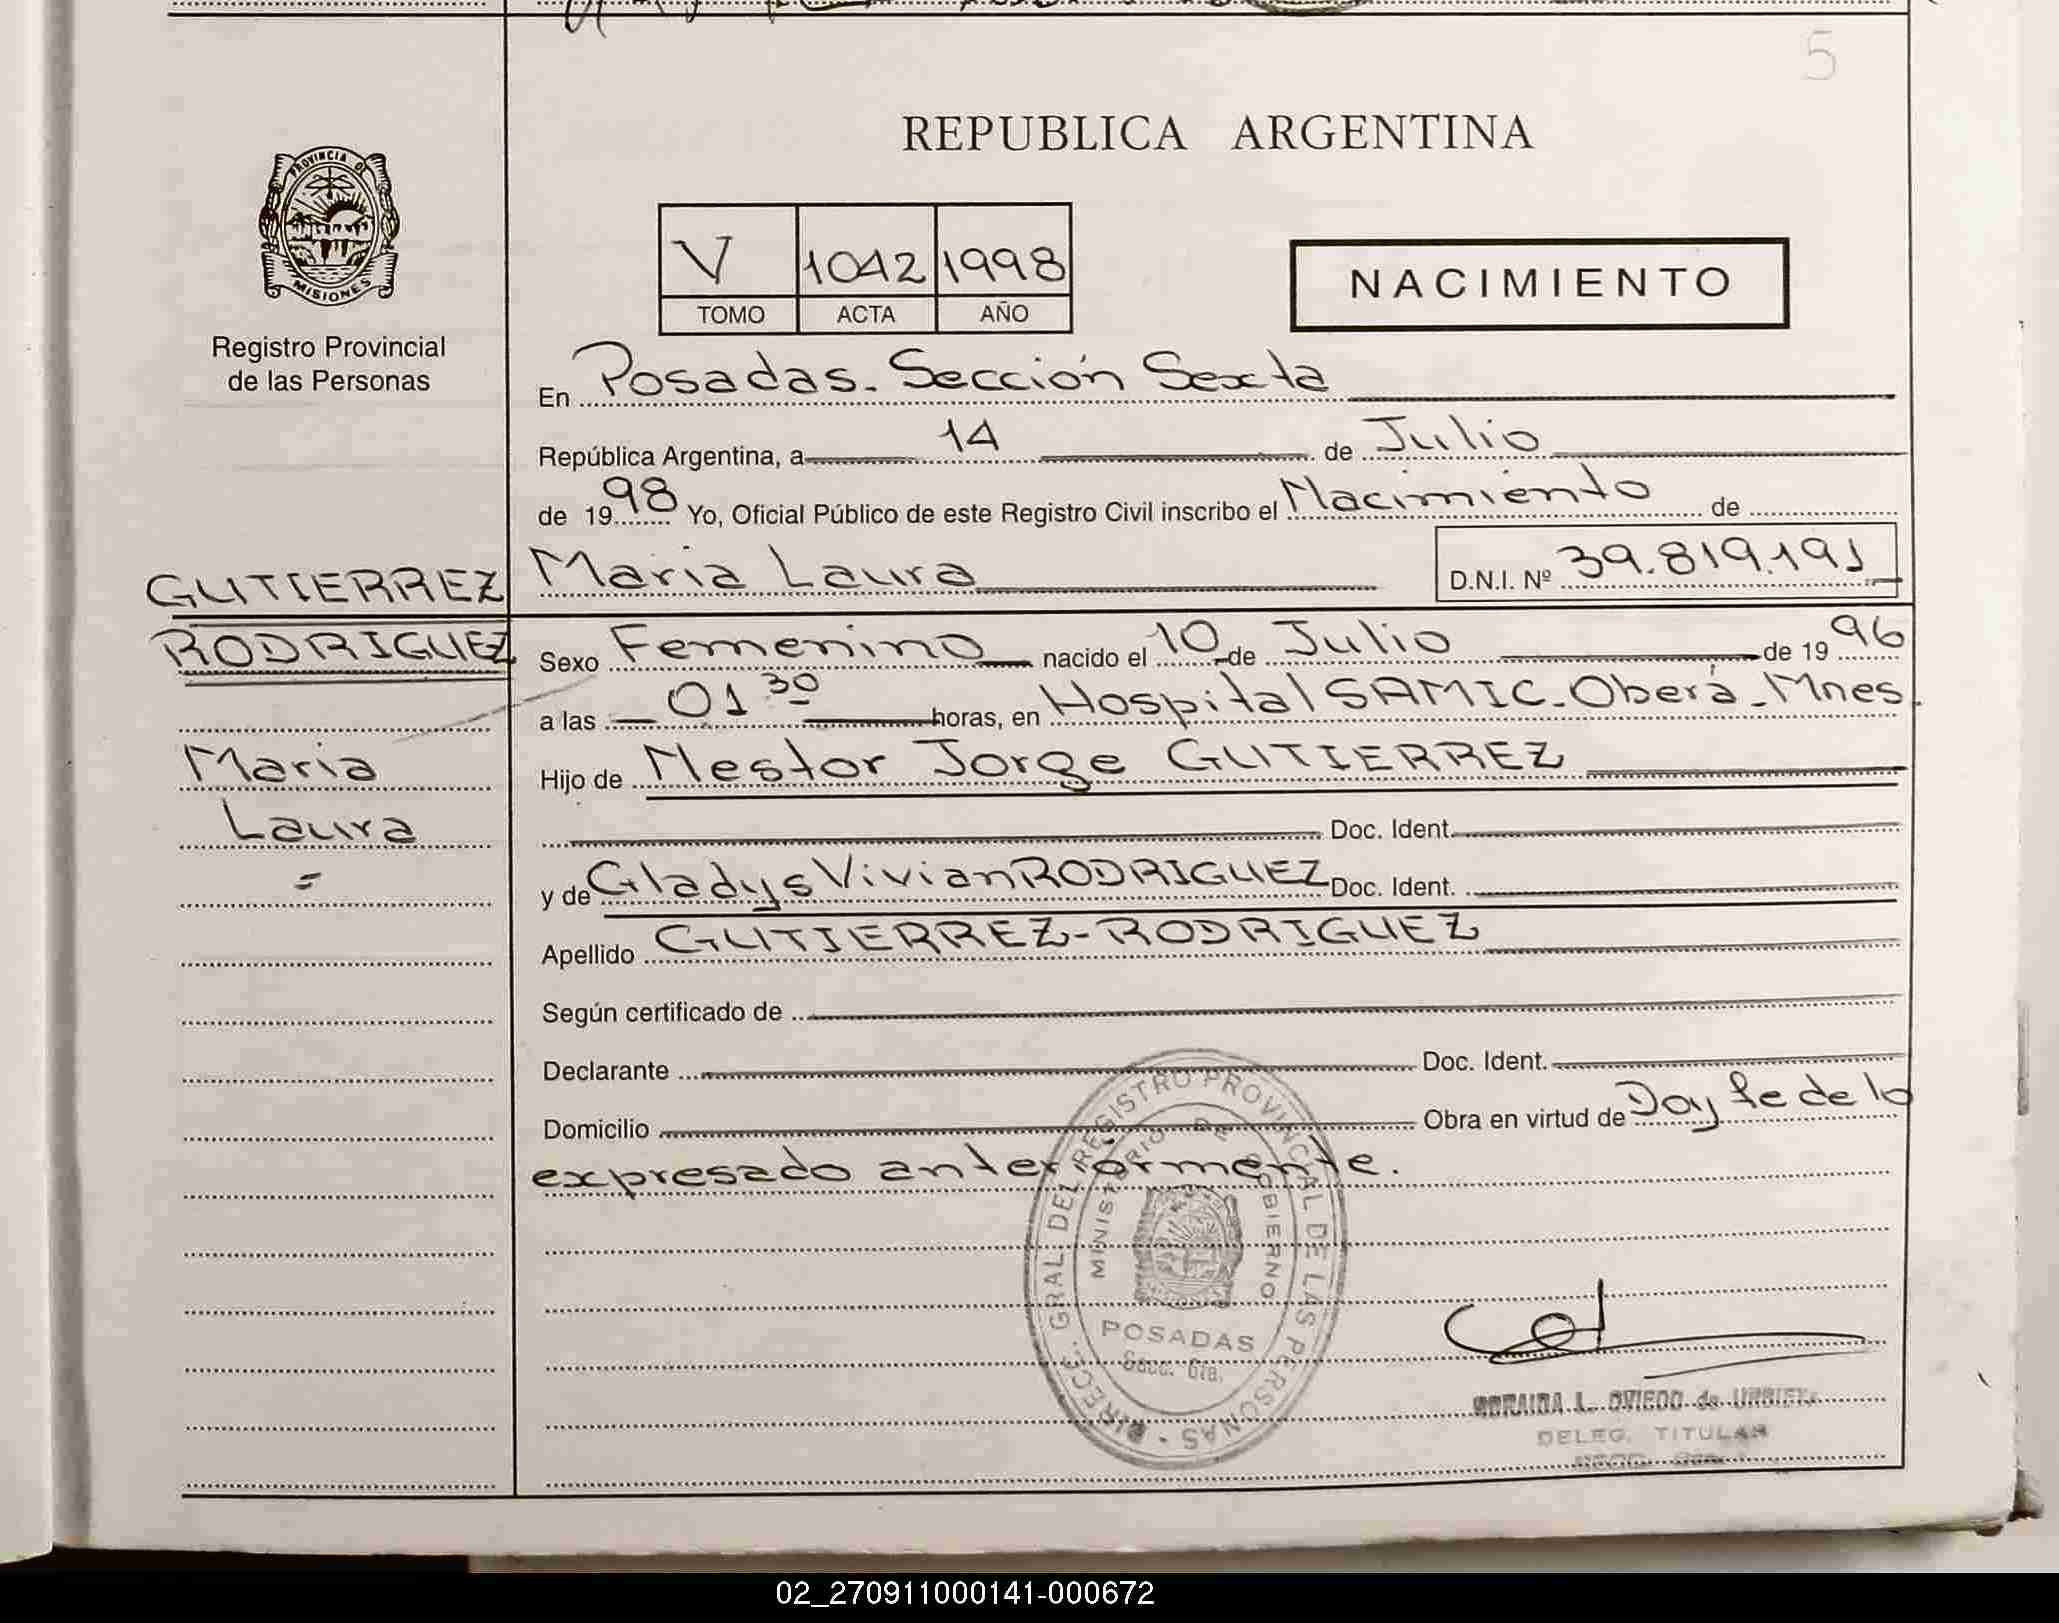 5
REPUBLICA ARGENTINA
PROVINCIA DE
MISIONES
Registro Provincial
de las Personas
V 1042 1998
TOMO ACTA AÑO
NACIMIENTO
En Posadas. Sección Sexta
República Argentina, a 14 de Julio
de 1998 Yo, Oficial Público de este Registro Civil inscribo el Nacimiento de
GUTIERREZ
RODRIGUEZ
Maria
Laura
Maria Laura D.N.I. Nº 39.819.191
Sexo Femenino nacido el 10 de Julio de 1996
a las 01 30 horas, en Hospital SAMIC. Oberá. Mnes.
Hijo de Nestor Jorge GUTIERREZ
Doc. Ident.
y de Gladys Vivian RODRIGUEZ Doc. Ident.
Apellido GUTIERREZ-RODRIGUEZ
Según certificado de
Declarante Doc. Ident.
Domicilio Obra en virtud de Doy fe de lo
expresado anteriormente.
DIRECC. GRAL. DEL REGISTRO PROVINCIAL DE LAS PERSONAS
MINISTERIO DE GOBIERNO
POSADAS
Secc. 6ta.
L. OVIEDO de
DELEG. TITULAR
02_270911000141-000672